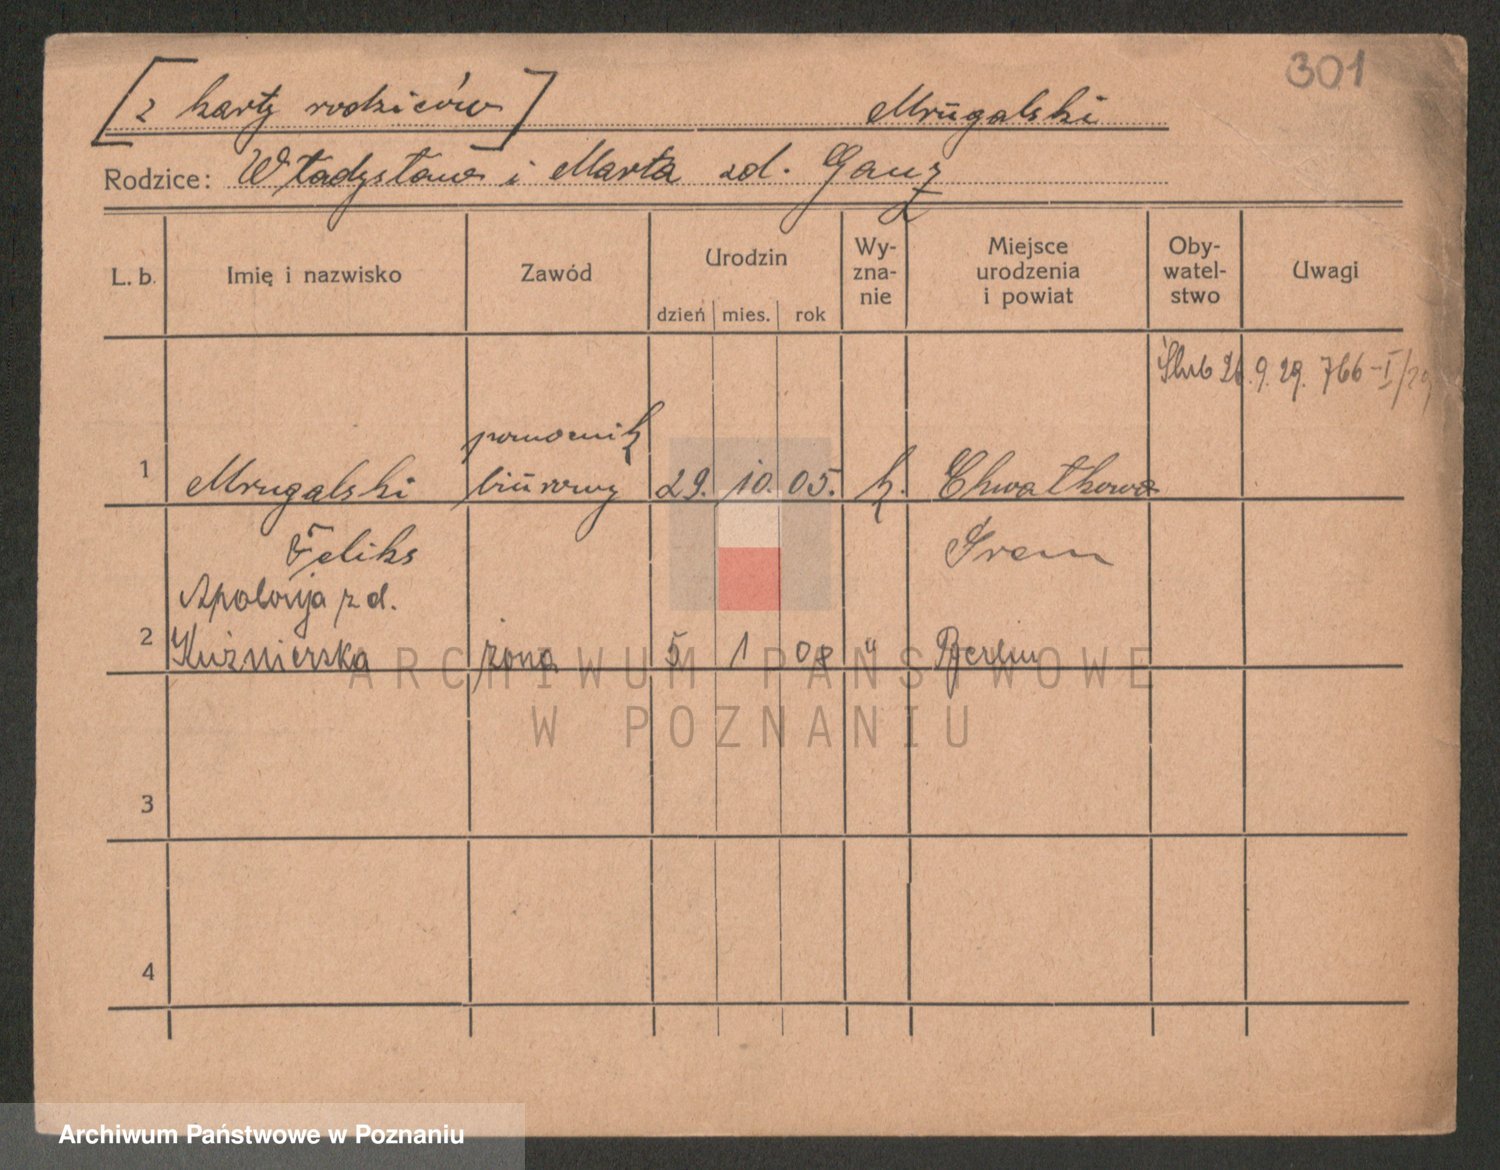 301
[z karty rodziców] Mrugalski
Rodzice: Władysław i Marta zd. Ganz
L. b. Imię i nazwisko Zawód Urodzin dzień mies. rok Wy-zna-nie Miejsce urodzenia i powiat Oby-watel-stwo Uwagi
Ślub 26.9.29. 766-I/29
pomocnik
1 Mrugalski biurowy 29. 10. 05. k. Chwałkowo
Feliks Śrem
Apolonja z d.
2 Kuźnierska żona 5 1 08 " Berlin
3
4
ARCHIWUM PAŃSTWOWE
W POZNANIU
Archiwum Państwowe w Poznaniu